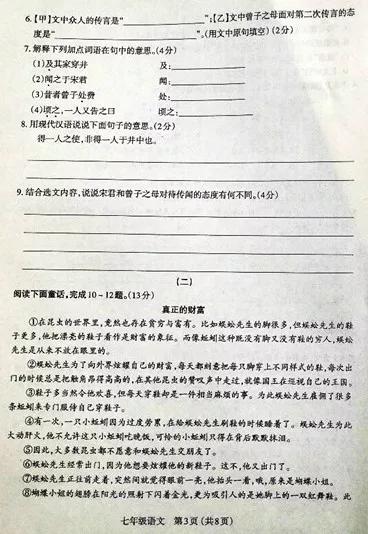 6.【甲】文中众人的传言是“                    ”;【乙】文中曾子之母面对第二次传言的态
度是“                    ”。(用文中原句填空)(2分)
7.解释下列加点词语在句中的意思。(4分)
(1)及其家穿井 及:
(2)闻之于宋君 闻:
(3)昔者曾子处费 处:
(4)顷之,一人又告之曰 顷之:
8.用现代汉语说说下面句子的意思。(2分)
得一人之使,非得一人于井中也。
9.结合选文内容,说说宋君和曾子之母对待传闻的态度有何不同。(4分)
(二)
阅读下面童话,完成10~12题。(13分)
真正的财富
①在昆虫的世界里,竟然也存在贫穷与富有。比如蜈蚣先生的脚很多,但蜈蚣先生的鞋
子更多,他把漂亮的鞋子看作是财富的象征。而像蚯蚓这种既没有脚又没有鞋的穷人,蜈蚣
先生是从来不放在眼里的。
②蜈蚣先生为了向外界炫耀自己的财富,每天都刻意把每只脚穿上不同样式的鞋,每次出
门的时候总是把触角昂得高高的,在其他昆虫的赞叹声中走过,就像国王在巡视自己的王国。
③鞋子多当然令他欢喜,但每天穿鞋却是一件相当麻烦的事。为此蜈蚣先生雇佣了很多
条蚯蚓来专门服侍自己穿鞋子。
④有一次,一只小蚯蚓因为过度劳累,在给蜈蚣先生刷鞋的时候睡着了。蜈蚣先生为此
大动肝火,他不允许这只小蚯蚓吃晚饭,可怜的小蚯蚓只得在背后默默抹泪。
⑤因此,大多数昆虫都不愿意和蜈蚣先生交朋友了。
⑥蜈蚣先生经常出门,因为他想要炫耀他的新鞋子。这不,他又出门了。
⑦蜈蚣先生正往前走着,突然间就觉得眼前一亮,他抬头一看,哦,原来是蝴蝶小姐。
⑧蝴蝶小姐的翅膀在阳光的照射下闪着金光,更为吸引人的是她脚上的一双虹舞鞋。此
七年级语文 第3页(共8页)